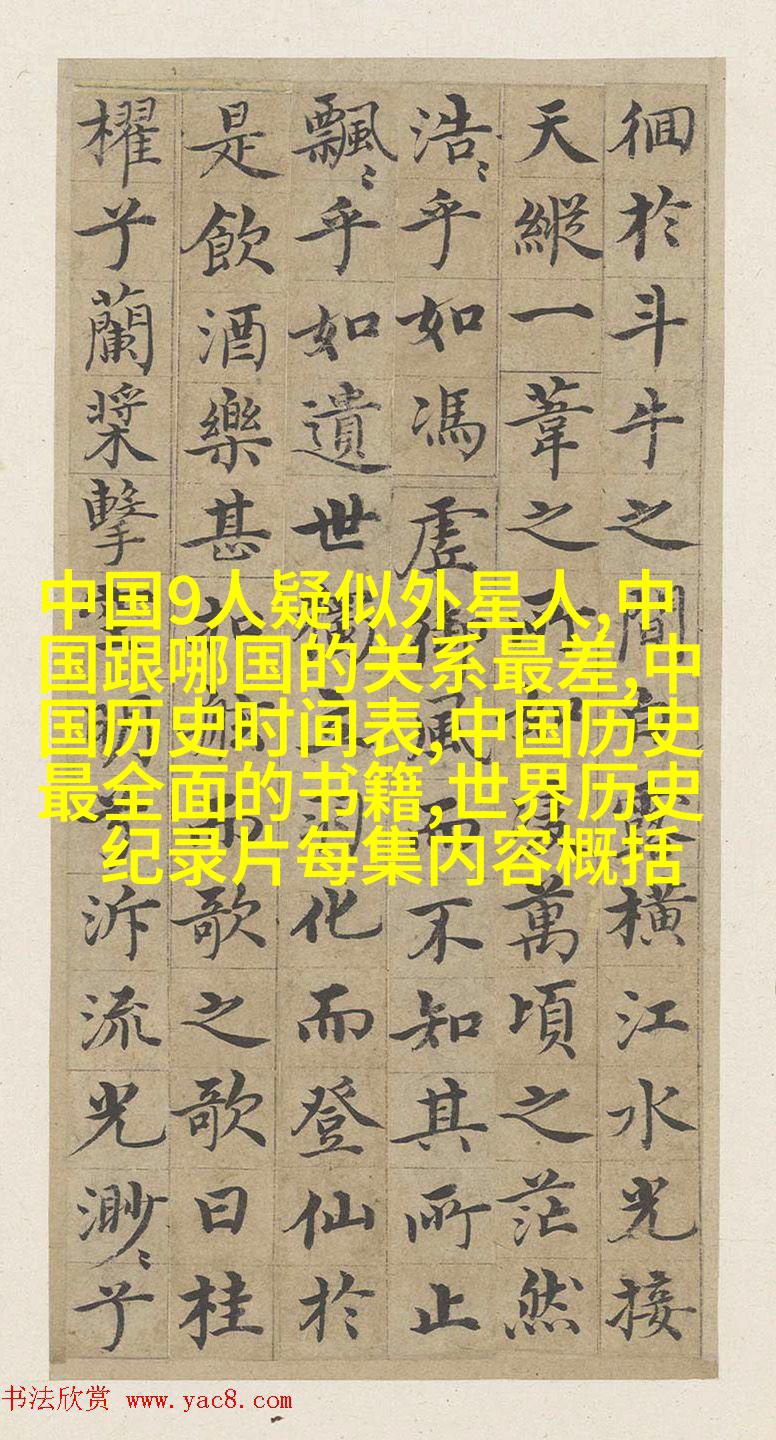 徊於斗牛之間白露橫江水光接
天縱一葦之所如凌萬頃之茫然
浩〻乎如馮虛御風而不知其所止
飄〻乎如遺世獨立羽化而登仙於
是飲酒樂甚扣舷而歌之歌曰桂
櫂兮蘭槳擊空明兮泝流光渺〻兮
中国9人疑似外星人,中
国跟哪国的关系最差,中
国历史时间表,中国历史
最全面的书籍,世界历史
纪录片每集内容概括
书法欣赏 www.yac8.com